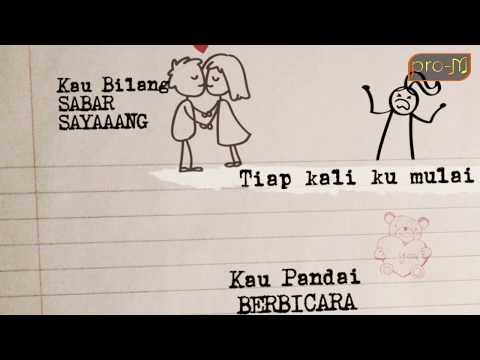 pro-M
Kau Bilang
SABAR
SAYAAANG
Tiap kali ku mulai
you
Kau Pandai
BERBICARA